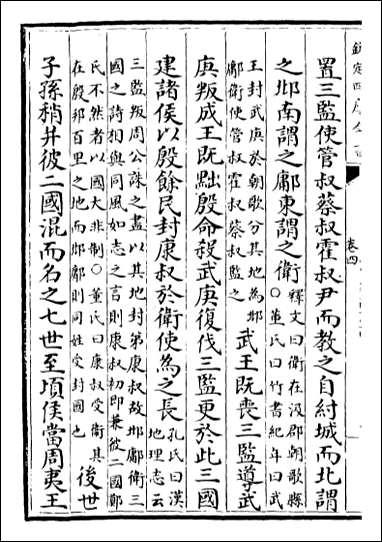 欽定四庫全書
卷四
置三監使管叔蔡叔霍叔尹而教之自紂城而北謂
之邶南謂之鄘東謂之衛
釋文曰衛在汲郡朝歌縣
○董氏曰竹書紀年曰武
王封武庚於朝歌分其地為邶
鄘衛使管叔霍叔蔡叔監之
武王既喪三監導武
庚叛成王既黜殷命殺武庚復伐三監更於此三國
建諸侯以殷餘民封康叔於衛使為之長
孔氏曰漢
地理志云
三監叛周公誅之盡以其地封弟康叔故邶鄘衛三
國之詩相與同風如志之言則康叔初即兼彼二國鄭
氏不然者以國大非制○董氏曰康叔受衛其
在殷邦百里之地而邶鄘則同姓受封國也
後世
子孫稍并彼二國混而名之七世至頃侯當周夷王